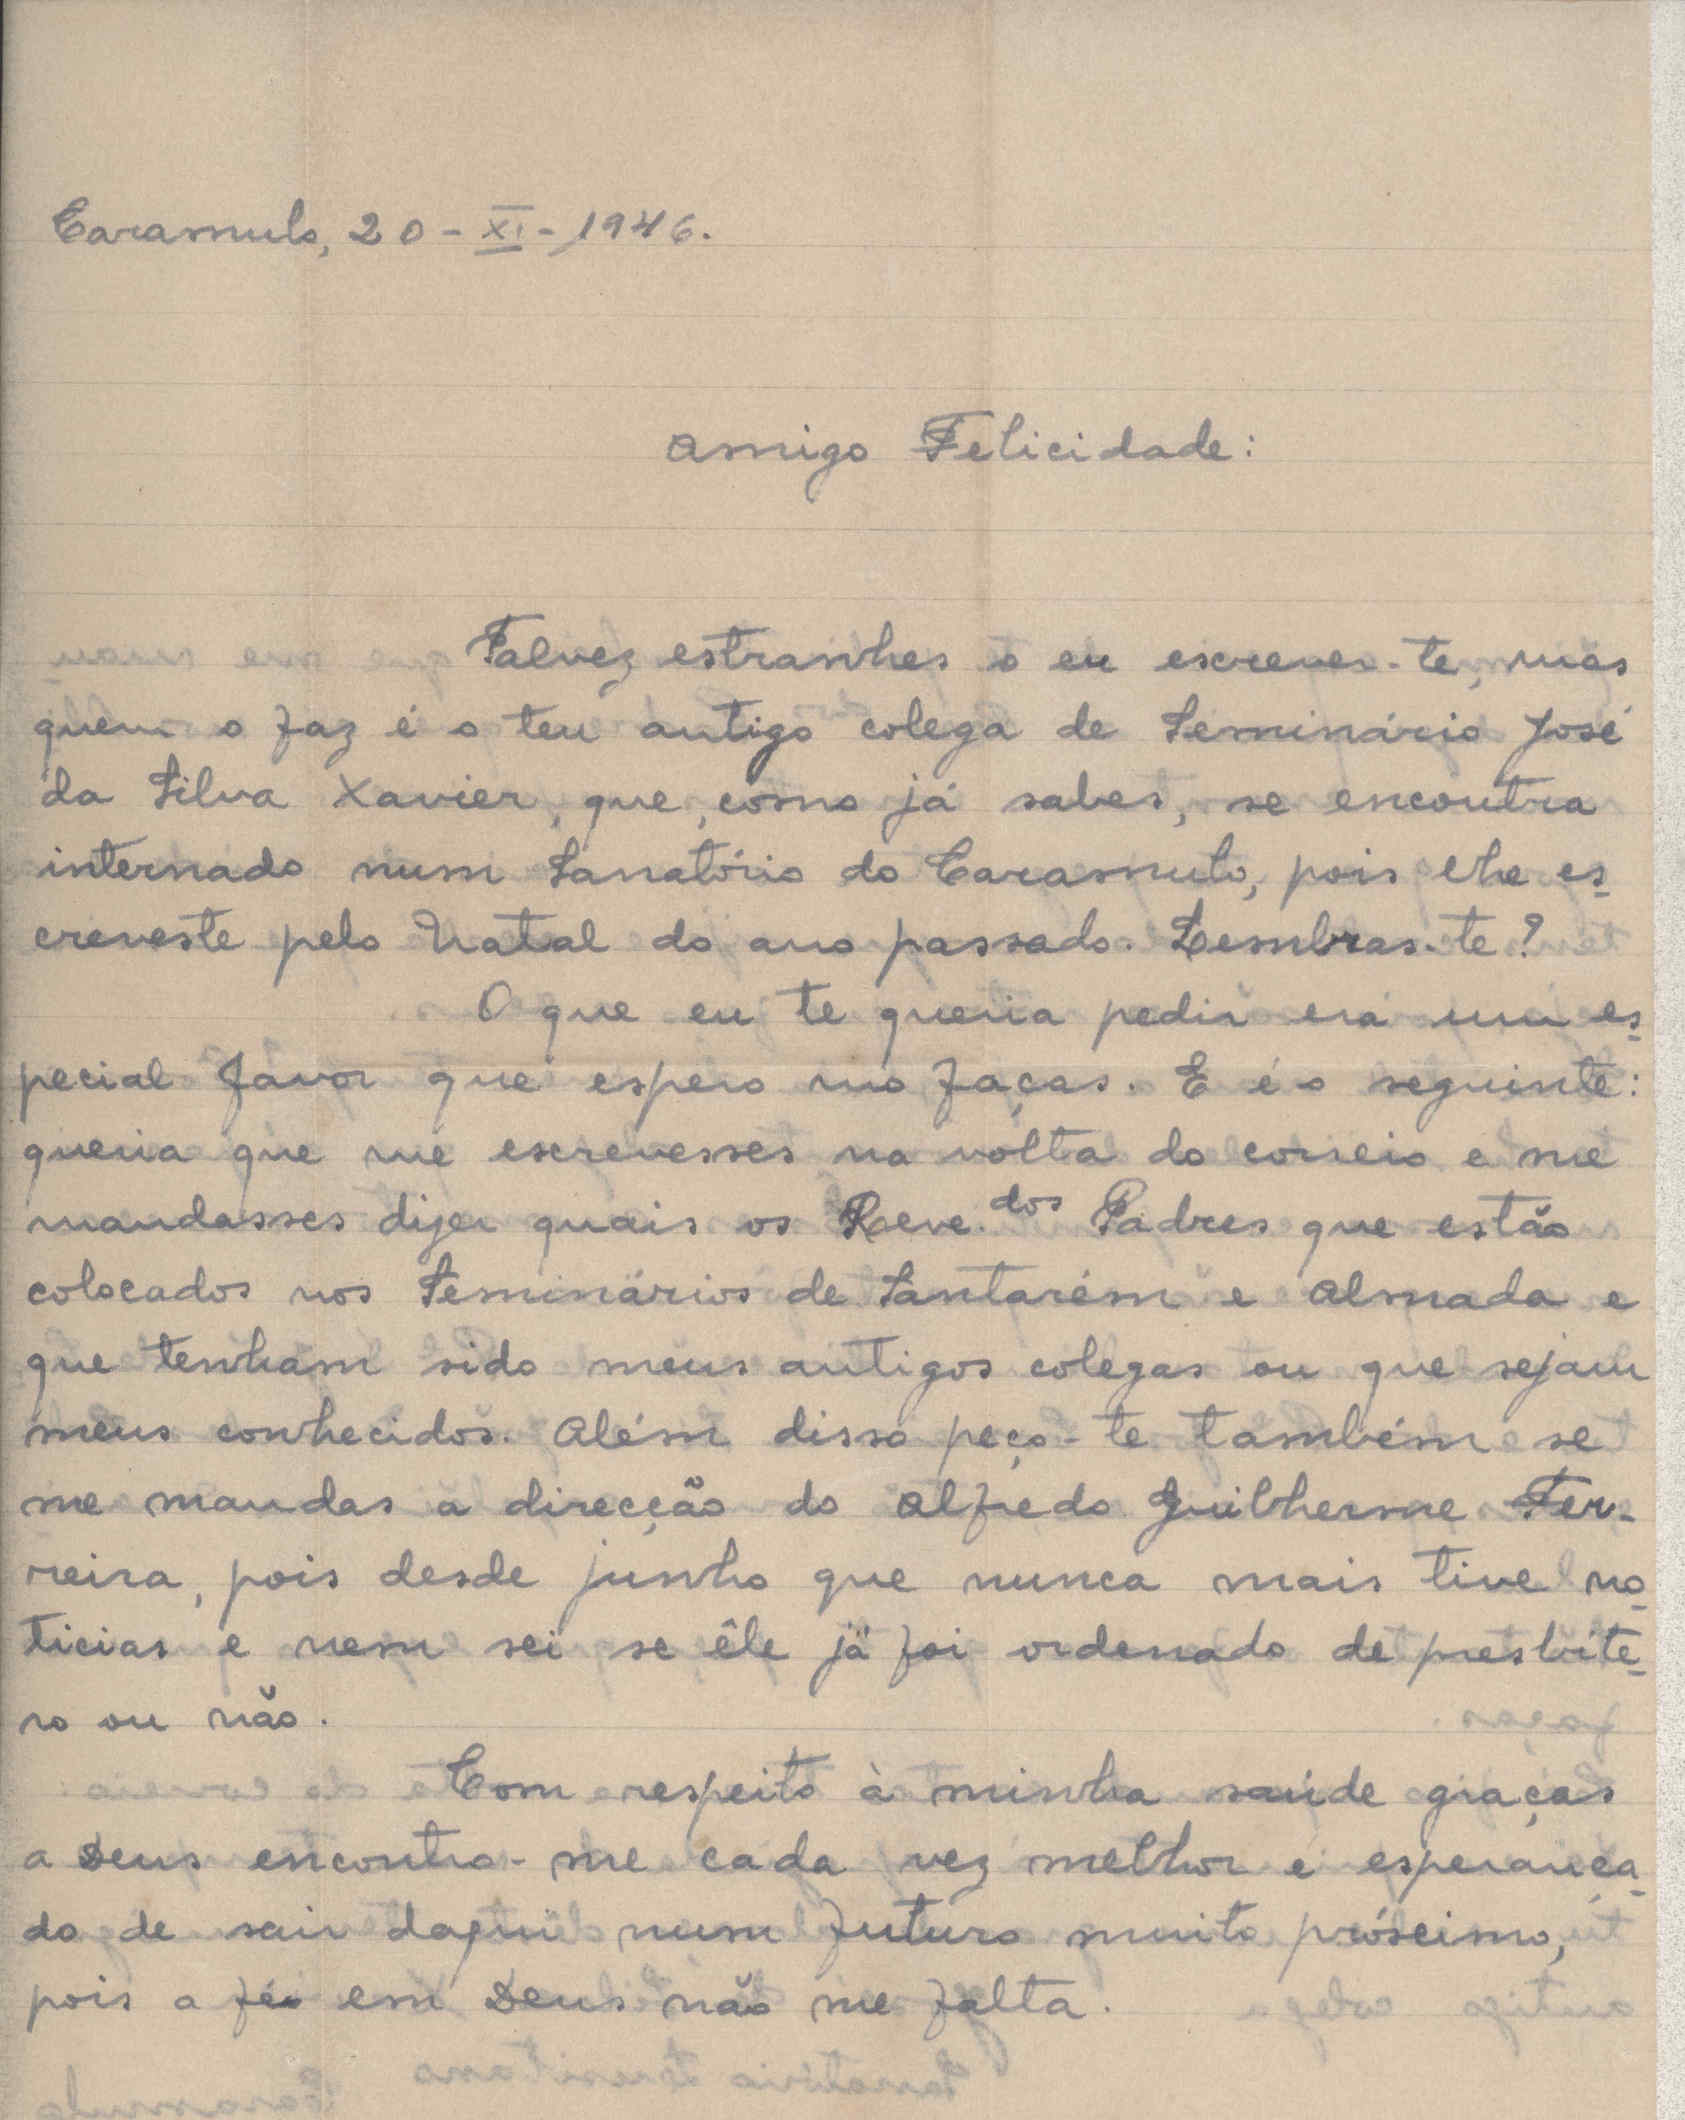 Caramulo, 20-XI-1946.
Amigo Felicidade:
Talvez estranhes o eu escrever-te, mas
quem o faz é o teu antigo colega de Seminário José
da Silva Xavier, que, como já sabes, se encontra
internado num Sanatório do Caramulo, pois lhe es-
creveste pelo Natal do ano passado. Lembras-te?
O que eu te queria pedir era um es-
pecial favor que espero mo faças. E é o seguinte:
queria que me escrevesses na volta do correio e me
mandasses dizer quais os Reve.dos Padres que estão
colocados nos Seminários de Santarém e Almada e
que tenham sido meus antigos colegas ou que sejam
meus conhecidos. Além disso peço-te também se
me mandas a direcção do Alfredo Guilherme Fer-
reira, pois desde junho que nunca mais tive no-
ticias e nem sei se êle já foi ordenado de presbite-
ro ou não.
Com respeito à minha saúde graças
a Deus encontro-me cada vez melhor e esperança-
do de sair daqui num futuro muito próscimo,
pois a fé em Deus não me falta.